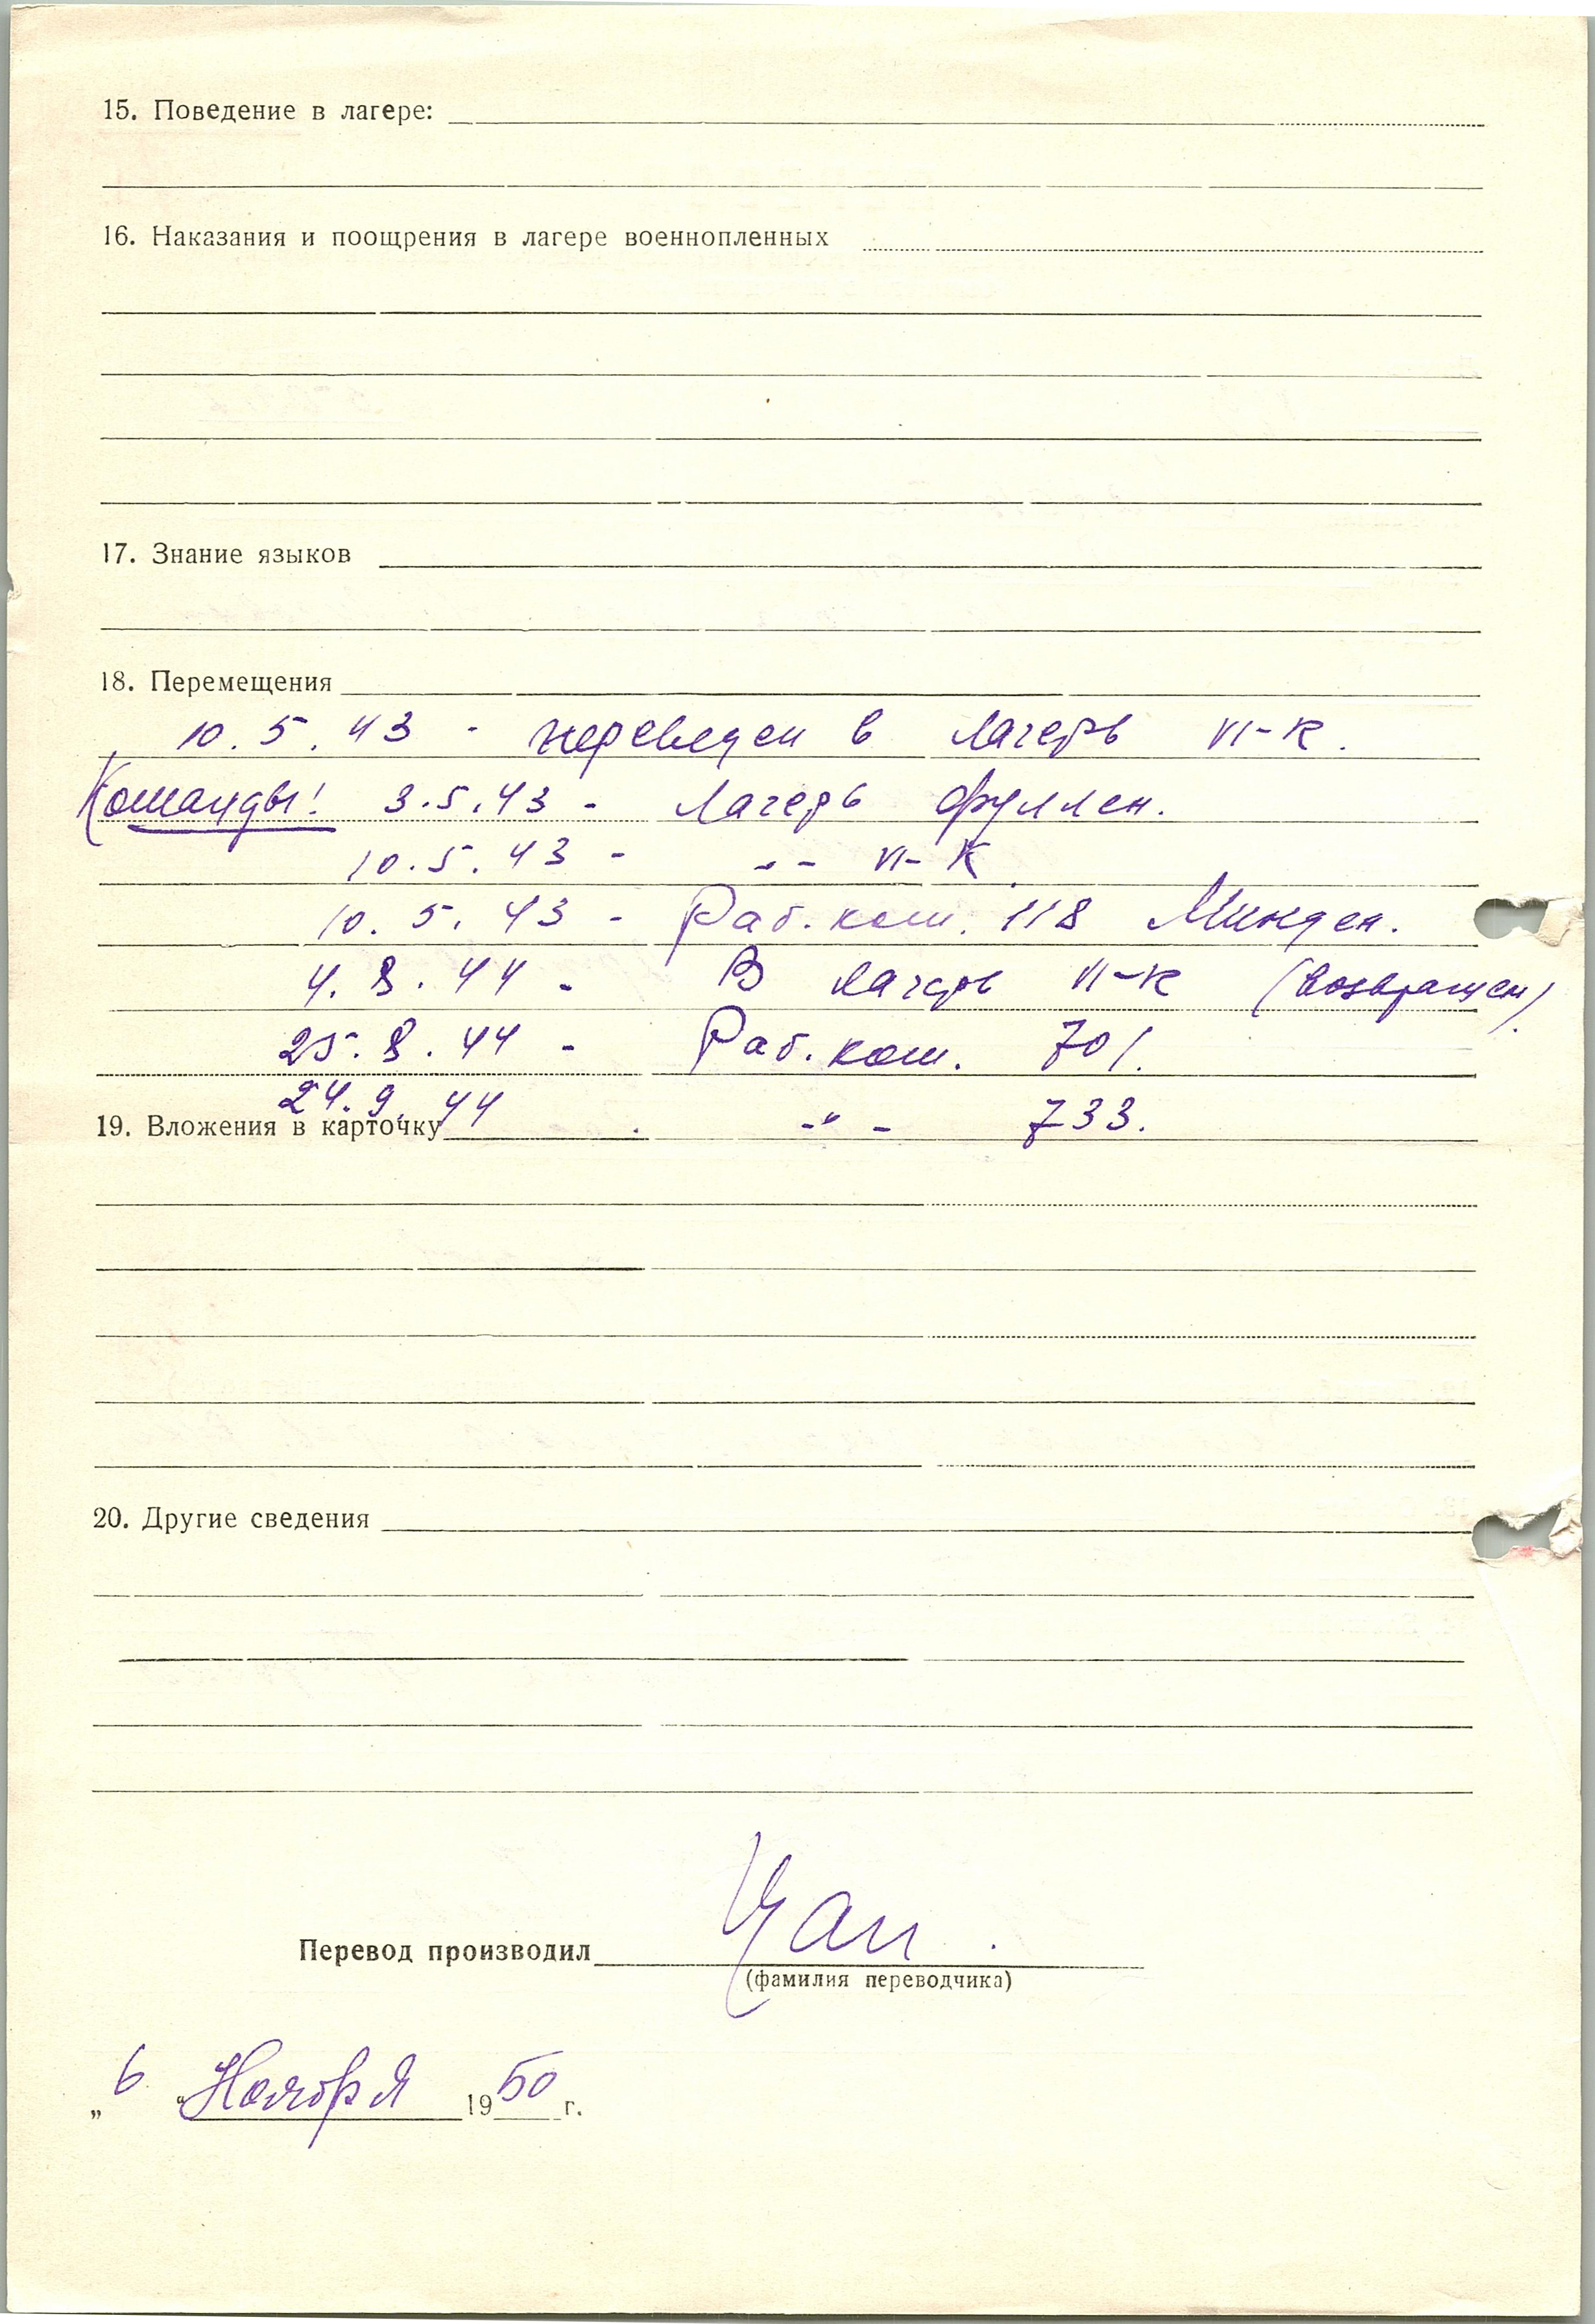 15. Поведение в лагере:
16. Наказания и поощрения в лагере военнопленных
17. Знание языков
18. Перемещения
10.5.43 - переведен в лагерь VI-К.
Команды! 3.5.43 - Лагерь Фуллен.
10.5.43 - -"- VI-К
10.5.43 - Раб. ком. 118 Минден.
4.8.44 - В лагерь VI-К (возвращен)
25.8.44 - Раб. ком. 701.
24.9.44 -"- 733.
19. Вложения в карточку
20. Другие сведения
Перевод производил Цан.
(фамилия переводчика)
„6“ Ноября 1950 г.